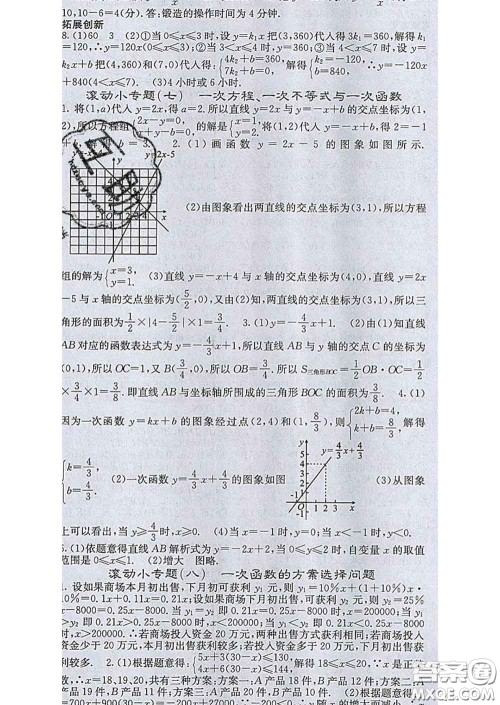 10,10-6=4(分). 答:锻造的操作时间为4分钟.
拓展创新
8.(1)60 3 (2)①当0≤x≤3时,设y=k₁x把(3,360)代入得3k₁=360,解得k₁=
120,∴y=120x(0≤x≤3);②当3<x≤4时,y=360;③当4<x≤7时,设y=
k₂x+b把(4,360)和(7,0)代入得:{4k₂+b=360, 7k₂+b=0, 解得{k₂=-120, b=840, ∴y=-120x
+840(4<x≤7). (3)4小时或6小时.
滚动小专题(七) 一次方程、一次不等式与一次函数
1. 将(1,a)代入y=2x,得a=2.所以直线y=2x与y=-x+b的交点坐标为(1,
2),所以方程组{2x-y=0, x+y-b=0, 的解是{x=1, y=2. 将(1,2)代入y=-x+b,得2=-1
2.(1)画函数y=2x-5的图象如图所示.
y=2x-5
(2)由图象看出两直线的交点坐标为(3,1),所以方程
组的解为{x=3, y=1. (3)直线y=-x+4与x轴的交点坐标为(4,0),直线y=2x
-5与x轴的交点坐标为(5/2,0),又由(2)知,两直线的交点坐标为(3,1),所以三
角形的面积为1/2×|4-5/2|×1=3/4. 3.(1)y=-4/3x+1. (2)由(1)知直线
AB对应的函数表达式为y=-4/3x+1,所以直线AB与y轴的交点C的坐标为
(0,1),所以OC=1,又B(3/4,0),所以OB=3/4.所以S三角形BOC=1/2OB·OC=1/2
×3/4×1=3/8.即直线AB与坐标轴所围成的三角形BOC的面积为3/8. 4.(1)
因为一次函数y=kx+b的图象经过点(2,4)和(1,8/3),则{2k+b=4, k+b=8/3, 解得
{k=4/3, b=4/3. (2)一次函数y=4/3x+4/3的图象如图 y=4/3x+4/3 (3)从图象
上可以看出,当y≥4/3时,x≥0. (4)当x=-1时,y=0;当x<-1时,y<0.
5.(1)依题意得直线AB解析式为y=-2x+2,当0≤y≤2时,自变量x的取值
范围是0≤x≤1. (2)增大 图略.
滚动小专题(八) 一次函数的方案选择问题
1. 设如果商场本月初出售,下月初可获利y₁元,则y₁=10%x+(1+10%)x·
10%=0.1x+0.11x=0.21x;设如果商场下月初出售,可获利y₂元,则y₂=25%
x-8000=0.25x-8000.当y₁=y₂时,0.21x=0.25x-8000,解得x=200000;
当y₁>y₂时,0.21x>0.25x-8000,解得x<200000;当y₁<y₂时,0.21x<0.25x
-8000,解得x>200000.∴若商场投入资金20万元,两种出售方式获利相同;若商场投入
资金少于20万元,本月初出售获利较多;若投入资金多于20万元,下月初出售获
利较多. 2.(1)根据题意得:{5x+3(30-x)≤130, 4x+6(30-x)≤144, 解得18≤x≤20,∵x是正
整数,∴x=18,19,20,共有三种方案:方案一:A产品18件,B产品12件;方案二:A
产品19件,B产品11件;方案三:A产品20件,B产品10件. (2)根据题意得:y=